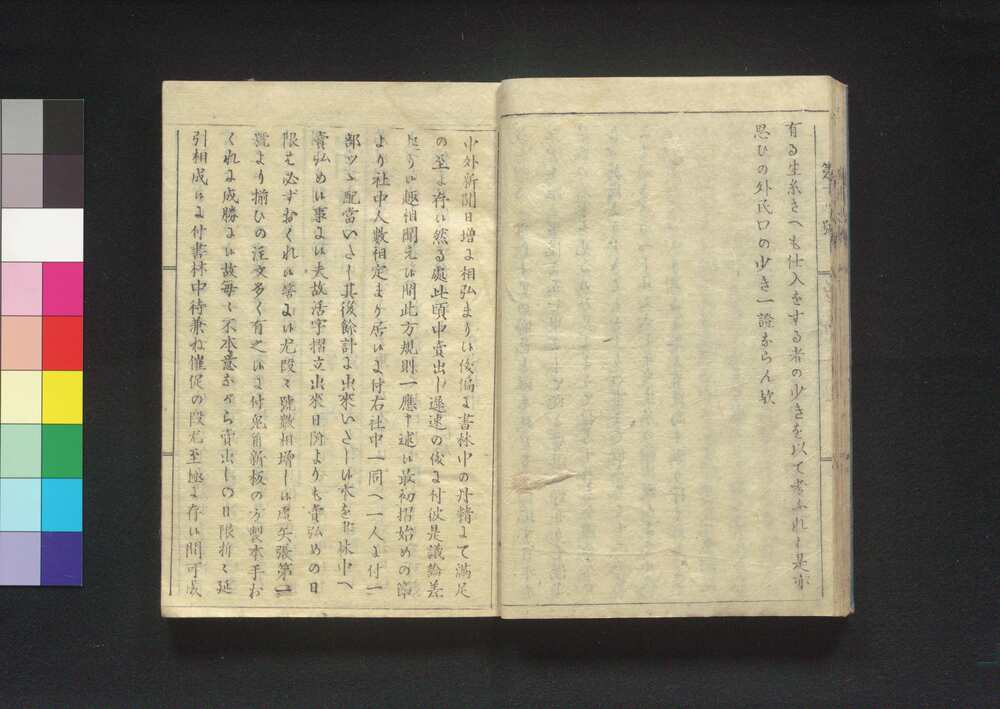 有る生糸さへも仕入をする者の少きを以て考ふれハ是亦
思ひの外戎口の少き一證ならん歟
中外新聞日増に相弘まり候儀偏に書林中の丹精にて満足
の至に存候然る處此頃中賣出し遅速の儀に付彼是議論差
起り候趣相聞え候間此方規則一應申述候最初摺始めの節
より社中人数相定まり居候に付右社中一同へ一人に付一
部ツヽ配當いたし其後餘計に出來いたし候本を書林中へ
賣弘め候事に候夫故活字摺立出來日限よりも賣弘めの日
限は必ずおくれ候筈に候尤段々號數相増し候處矢張第一
號より揃ひの注文多く有之候に付兎角新板の方製本手お
くれに成勝に候故毎々不本意ながら賣出しの日限折々延
引相成候に付書林中待兼ね催促の段尤至極に存候間可成